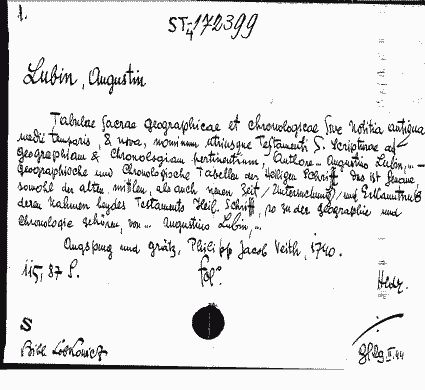 1.
ST4-172399
Lubin, Augustin
Tabulae Sacrae Geographicae et chronologicae sive Notitia antiqua
medii temporis, & nova, nominum utriusque Testamenti S. Scripturae ad
Geographiam & Chronologiam pertinentium, Authore... Augustino Lubin,... -
Geographische und Chronologische Tabellen der Heiligen Schrift Das ist Genaue
sowohl der alten, mitlen, als auch neuen Zeit / Untersuchung / und Erkantnuß
deren Nahmen beydes Testaments Heil. Schrifft, so zu der Geographie und
Chronologie gehören, von... Augustino Lubin,...
Augspurg und Grätz, Philipp Jacob Veith, 1740.
115, 87 S. fol°.
S
Bibl Lobkowicz